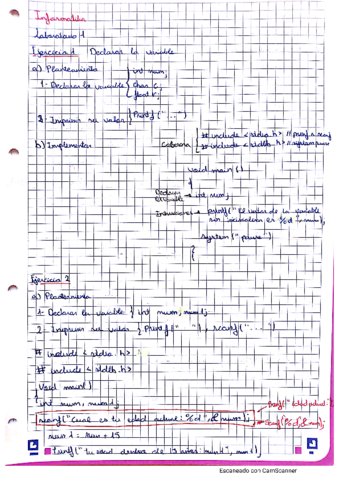 Informática
Laboratorio 1
Ejercicio 1 Declarar la variable
a) Planteamiento
1- Declarar la variable { int num;
char c;
float r;
2- Imprimir su valor { Printf ("...")
b) Implementar
Cabecera { # include < stdio.h> // printf & scanf
# include < stdlib.h> // system pause
void main ()
{
Declarar variable → int num;
Instrucciones → printf("El valor de la variable
sin inicializar es %d", num);
system ("pause")
}
Ejercicio 2
a) Planteamiento
1- Declarar la variable { int num, num1;
2- Imprimir su valor { Printf (" "), scanf(" ... ")
# include < stdio.h>
# include < stdlib.h>
void main()
int num, num1;
scanf("cual es tu edad actual: %d", & num);
printf("edad actual:")
scanf(%d, & num);
num 1 = num + 15
Printf("tu edad dentro de 15 años: num1", num1);
Escaneado con CamScanner